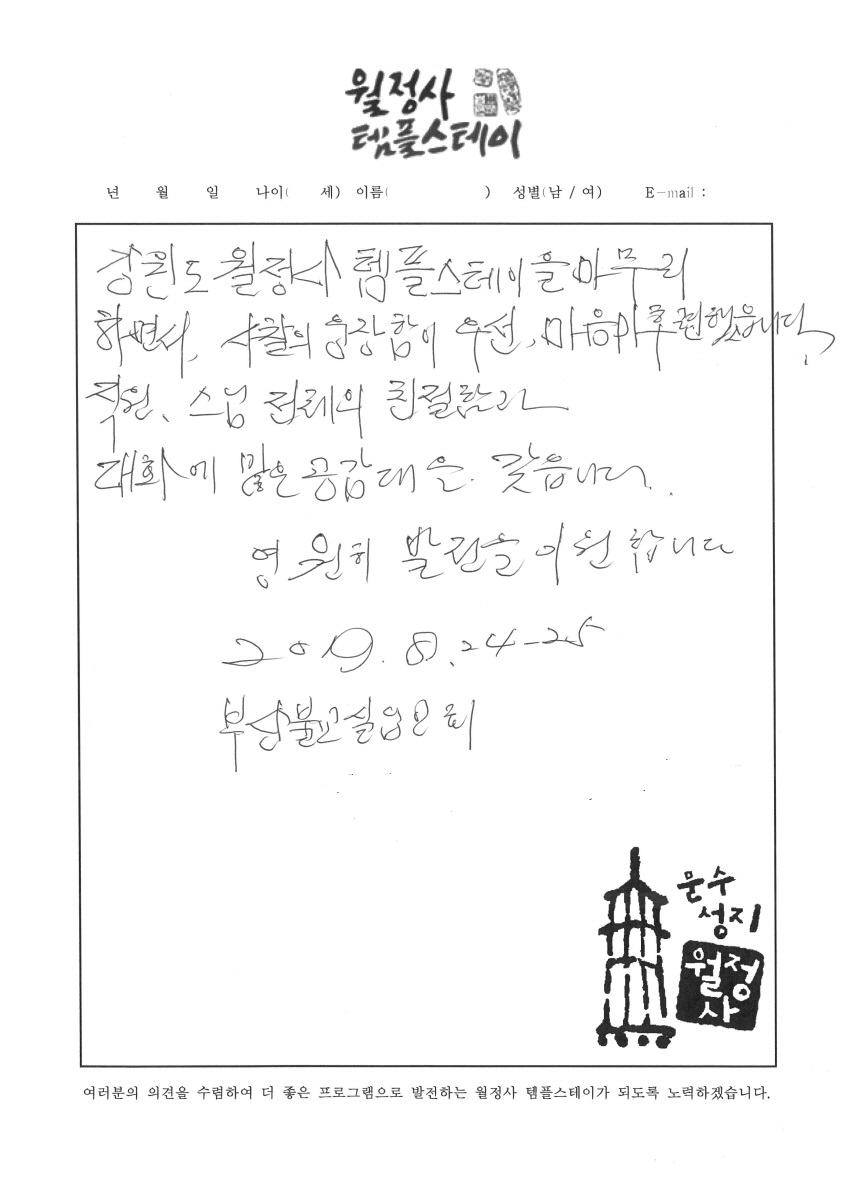 월정사
템플스테이
년 월 일 나이( 세) 이름( ) 성별(남 / 여) E-mail :
강원도 월정사 템플스테이을 마무리
하면서, 사찰의 웅장함이 우선, 마음마 후련했읍니다,
직원, 스님 전체의 친절함과
대화에 많은 공감대을 갖읍니다.
영원히 발전을 기원합니다
2019. 8. 24-25
부산불교실업인회
문수
성지
월정
사
여러분의 의견을 수렴하여 더 좋은 프로그램으로 발전하는 월정사 템플스테이가 되도록 노력하겠습니다.